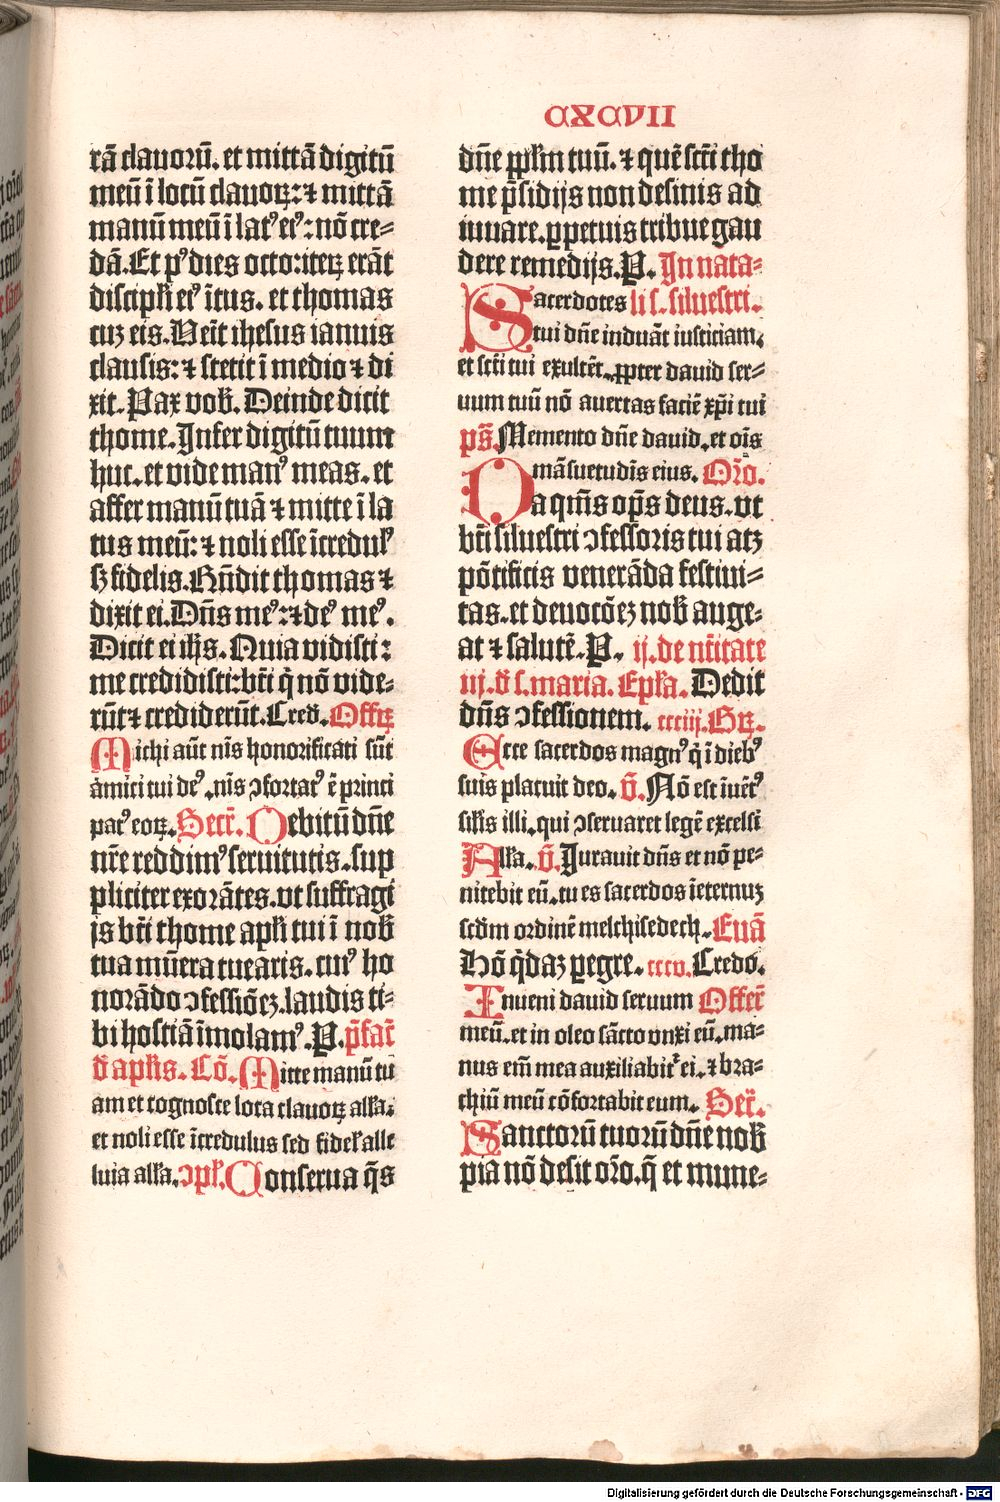 CXCVII
rā clauorū. et mittā digitū
meū ī locū clauoꝝ: ⁊ mittā
manū meū ī latꝰ eiꝰ: nō cre⸗
dā. Et pꝰ dies octo: iteꝝ erāt
discipłi eiꝰ ītus. et thomas
cuꝫ eis. Uēit ihesus ianuis
clausis: ⁊ stetit ī medio ⁊ di
xit. Pax vob̄. Deinde dicit
thome. Infer digitū tuum
huc. et vide manꝰ meas. et
affer manū tuā ⁊ mitte ī la
tus meū: ⁊ noli esse īcredulꝰ
sꝫ fidelis. Rn̄dit thomas ⁊
dixit ei. Dn̄s meꝰ: ⁊ deꝰ meꝰ.
Dicit ei ih̄s. Quia vidisti:
me credidisti: bt̄i q̄ nō vide⸗
rūt ⁊ crediderūt. Cred̄. Offꝝ
Michi aūt nīs honorificati sūt
amici tui deꝰ. nīs ↄfortatꝰ ē princi
patꝰ eoꝝ. Secr̄. Debitū dn̄e
nr̄e reddimꝰ seruitutis. sup
pliciter exorātes. vt suffragi
js bt̄i thome apłi tui ī nob̄
tua mūera tuearis. cuiꝰ ho
norādo ↄfessiōeꝫ. laudis ti⸗
bi hostiā īmolamꝰ. P. p̄fac̄
d̄ apłis. Cō. Mitte manū tu
am et cognosce loca clauoꝝ ałła:
et noli esse īcredulus sed fideł alle
luia ałła. ↄpł. Conserua q̄s
dn̄e ꝓpłm tuū. ⁊ quē sct̄i tho
me p̄sidijs non desinis ad
iuuare. ꝑpetuis tribue gau
dere remedijs. P. In nata⸗
Sacerdotes li s. siluestri.
tui dn̄e induāt iusticiam.
et sct̄i tui exultēt. ꝓpter dauid ser⸗
uum tuū nō auertas faciē xp̄i tui
ps̄. Memento dn̄e dauid. et oīs
māsuetudīs eius. Or̄o.
Da qm̄s op̄s deus. vt
bt̄i siluestri ↄfessoris tui atꝫ
pōtificis venerāda festiui⸗
tas. et deuocōeꝫ nob̄ auge⸗
at ⁊ salutē. P. ij. de nt̄itate
iij. d̄ s. maria. Epła. Dedit
dn̄s ↄfessionem. ccciij. Gꝝ.
Ecce sacerdos magnꝰ q̄ ī diebꝰ
suis placuit deo. v̄. Nō est īuētꝰ
siłis illi. qui ↄseruaret legē excelsi
Ałła. v̄. Iurauit dn̄s et nō pe⸗
nitebit eū. tu es sacerdos īeternuꝫ
scd̄m ordinē melchisedech. Euā
Hō q̄daꝫ ꝑegre. cccv. Credo.
Inueni dauid seruum Offer̄
meū. et in oleo sācto vnxi eū. ma⸗
nus em̄ mea auxiliabitᷣ ei. ⁊ bra⸗
chiū meū cōfortabit eum. Secr̄.
Sanctorū tuorū dn̄e nob̄
pia nō desit or̄o. q̄ et mune⸗
Digitalisierung gefördert durch die Deutsche Forschungsgemeinschaft - DFG